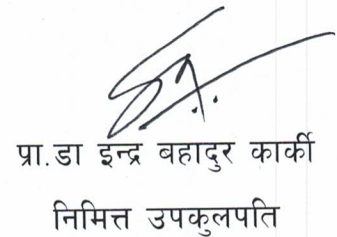 प्रा.डा इन्द्र बहादुर कार्की
निमित्त उपकुलपति